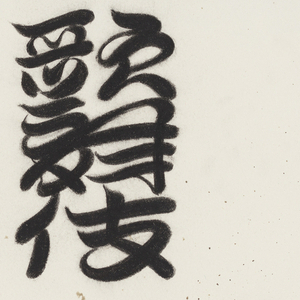 歌舞伎